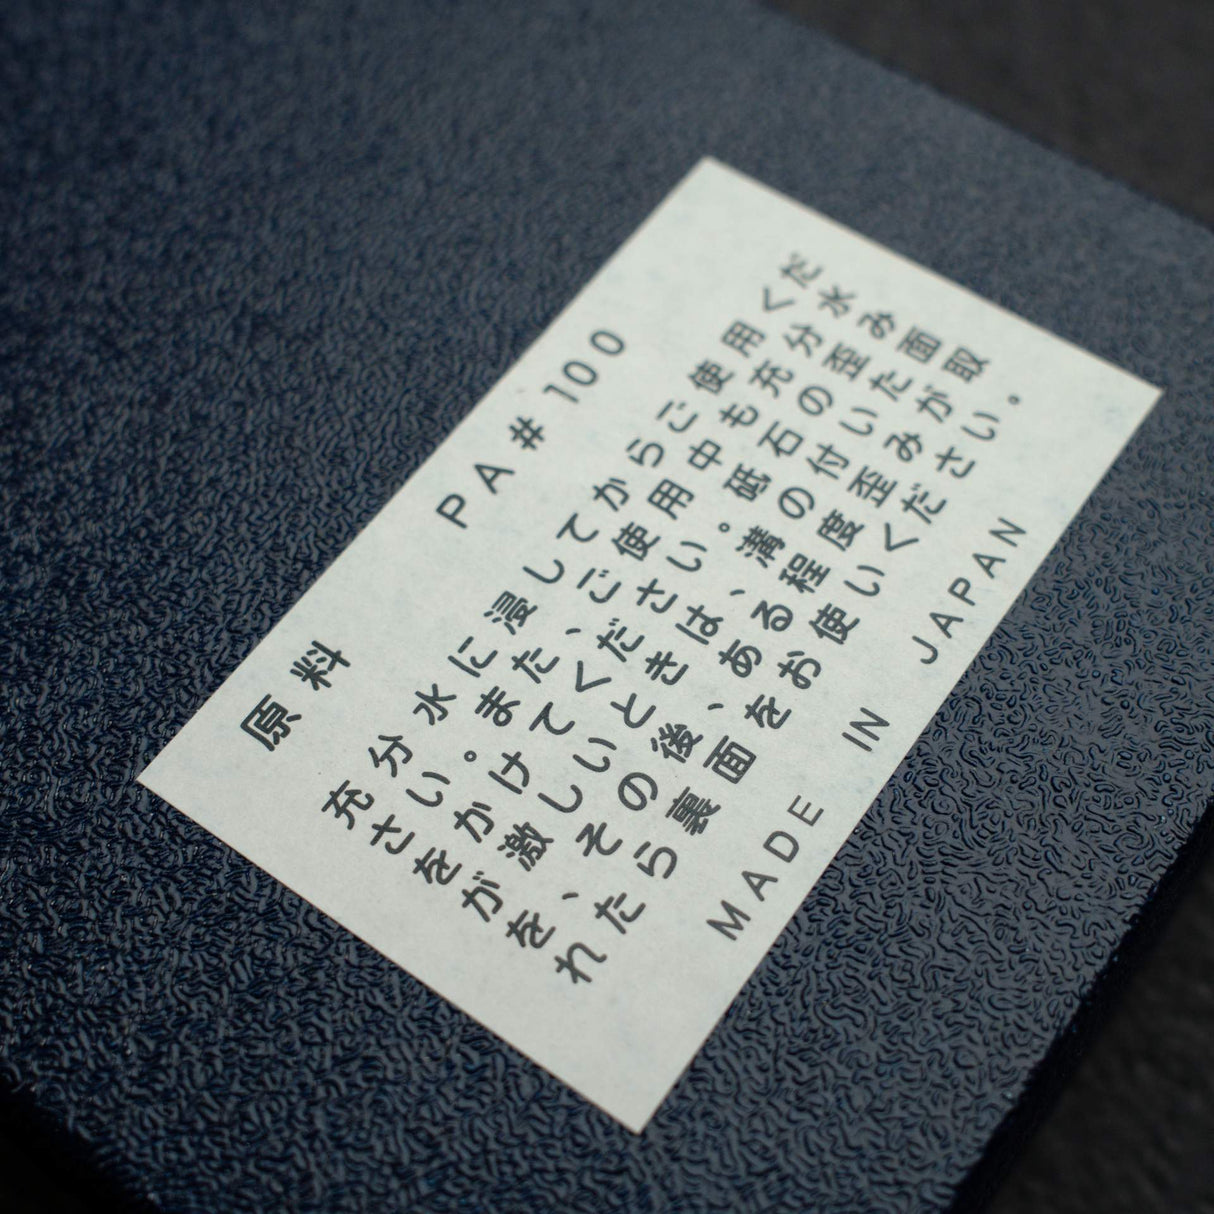 原料 PA#100
充分水に浸してからご使用くだ
さい。また、ご使用中も充分水
をかけてください。砥石の歪み
が激しいときは、溝の付いた面
を、その後、ある程度歪みが取
れたら裏面をお使いください。
MADE IN JAPAN